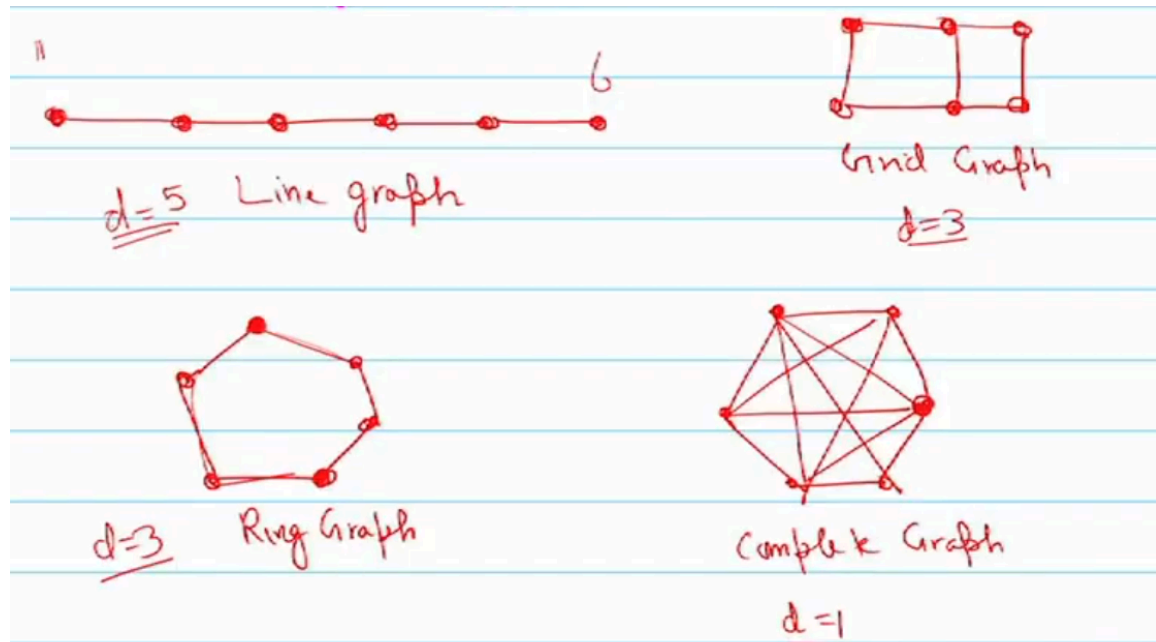 11
6
d=5 Line graph
Grid Graph
d=3
d=3 Ring Graph
Complete Graph
d=1